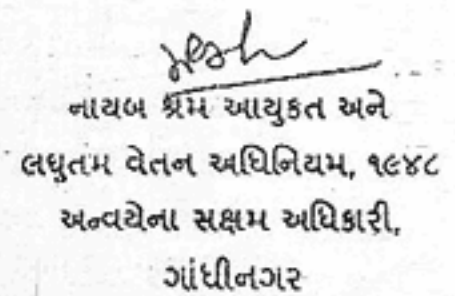 નાયબ શ્રમ આયુકત અને
લઘુતમ વેતન અધિનિયમ, ૧૯૪૮
અન્વયેના સક્ષમ અધિકારી,
ગાંધીનગર